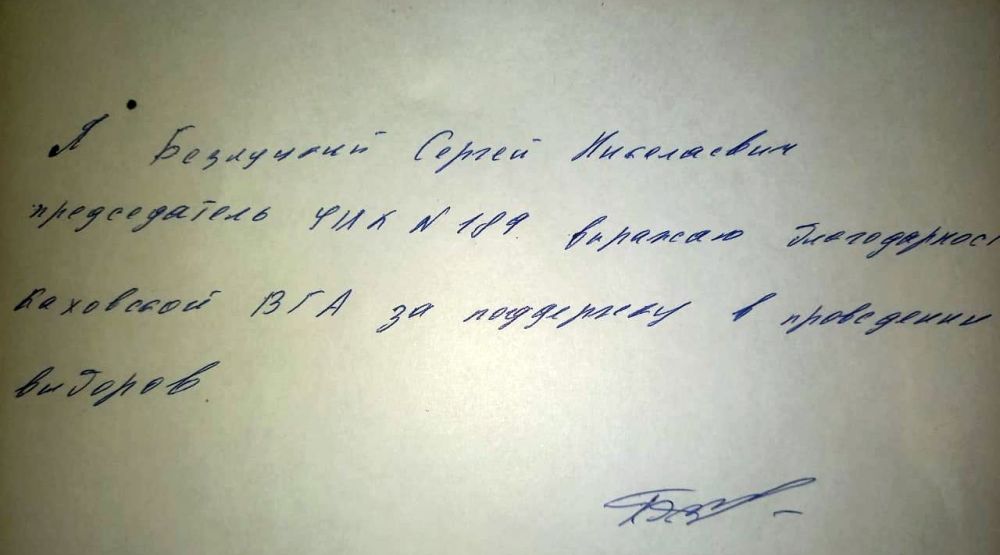 Я Безлуцкий Сергей Николаевич
председатель УИК N 189. выражаю благодарнос
Каховской ВГА за поддержку в проведении
выборов.